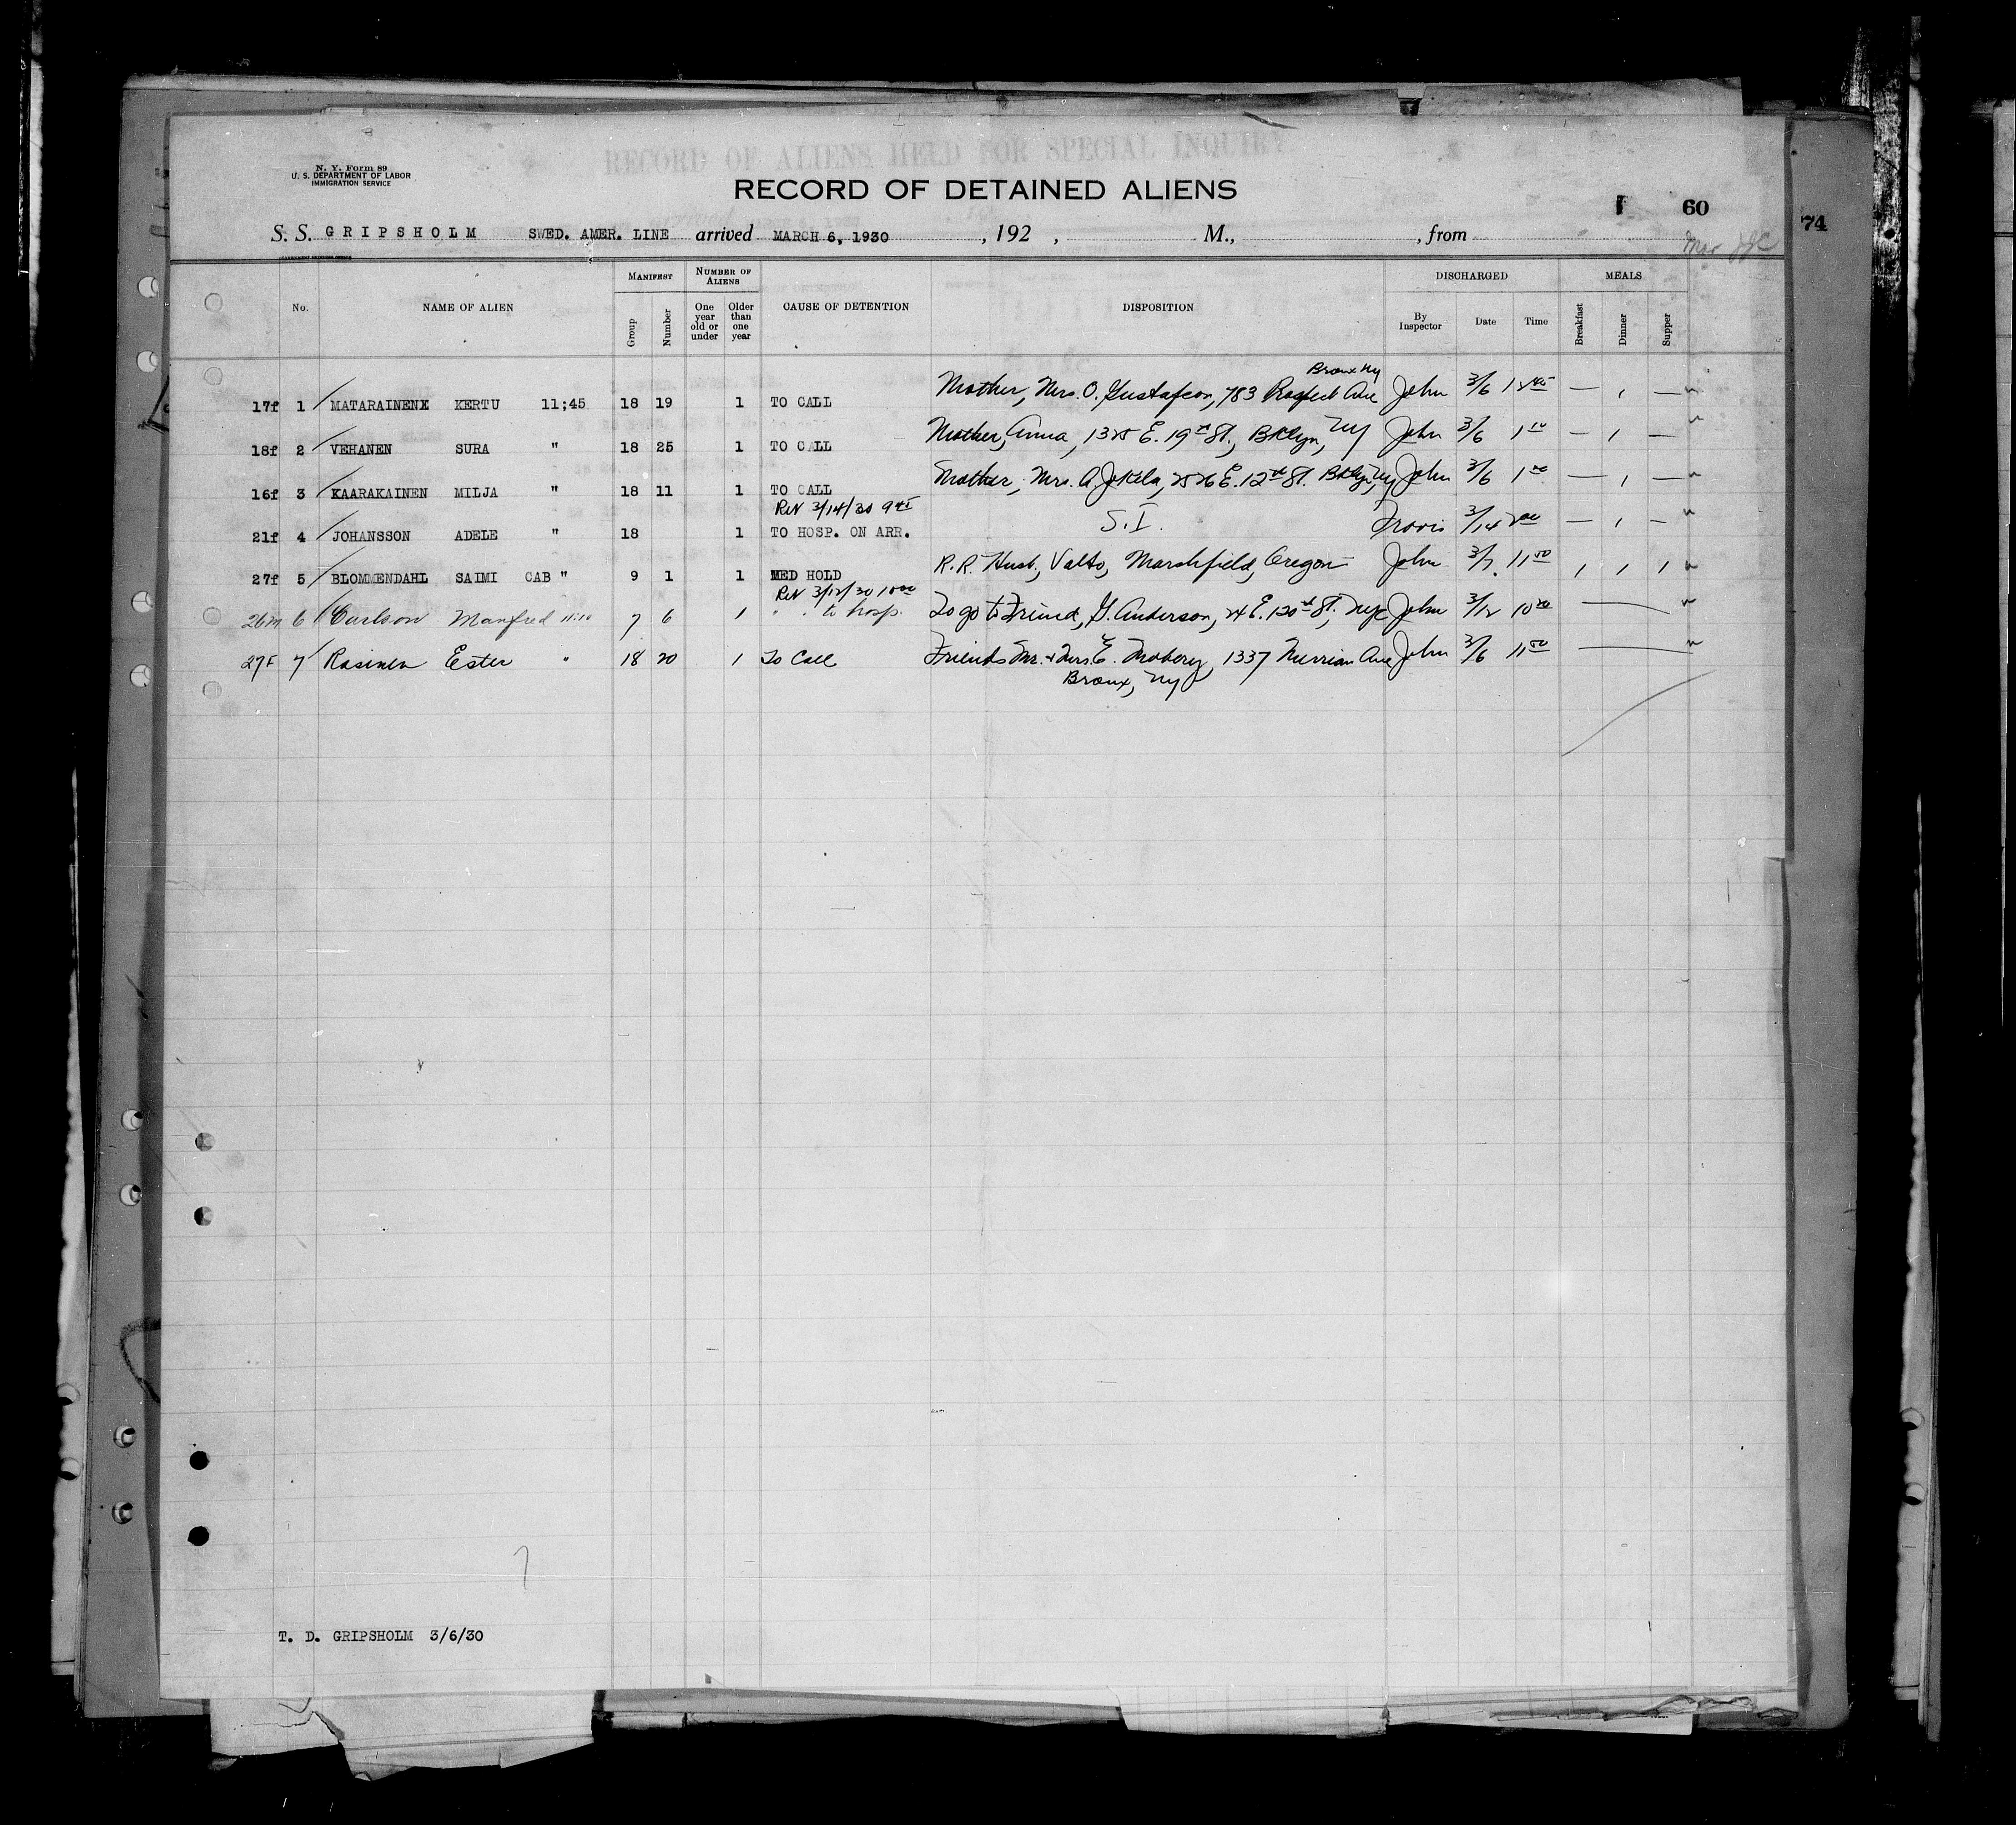 RECORD OF ALIENS HELD FOR SPECIAL INQUIRY
N. Y. Form 89
U. S. DEPARTMENT OF LABOR
IMMIGRATION SERVICE
RECORD OF DETAINED ALIENS
60
74
S. S. GRIPSHOLM SWED. AMER. LINE arrived MARCH 6, 1930 , 192 , M., , from
Mar
No. NAME OF ALIEN MANIFEST Group Number NUMBER OF ALIENS One year old or under Older than one year CAUSE OF DETENTION DISPOSITION DISCHARGED By Inspector Date Time MEALS Breakfast Dinner Supper
Bronx Ny
17f 1 MATARAINENX KERTU 11;45 18 19 1 TO CALL Mother, Mrs. O. Gustafson, 783 Prospect Ave John 3/6 12 45 — 1 —
18f 2 VEHANEN SURA " 18 25 1 TO CALL Mother, Anna, 1325 E. 19th St., Bklyn, Ny John 3/6 1 — 1 —
16f 3 KAARAKAINEN MILJA " 18 11 1 TO CALL Mother, Mrs. A. Jokela, 2526 E. 12th St. Bklyn, Ny John 3/6 1 — 1 —
Rev 3/14/30 9
21f 4 JOHANSSON ADELE " 18 1 TO HOSP. ON ARR. S.I. Travis 3/14 2 00 — 1 —
27f 5 BLOMMENDAHL SAIMI CAB " 9 1 1 MED HOLD R.R. Husb, Valto, Marshfield, Oregon John 3/7 11 50 1 1 1
Rev 3/12/30 10 00
26m 6 Carlson Manfred 11:10 7 6 1 " " to hosp. To go to Friend, G. Anderson, 24 E. 120th St., Nyc John 3/12 10 20 —
27F 7 Rasinen Ester " 18 20 1 To Call Friends Mr. & Mrs. E. Moberg, 1337 Merriam Ave John 3/6 11 50 —
Bronx, Ny
T. D. GRIPSHOLM 3/6/30